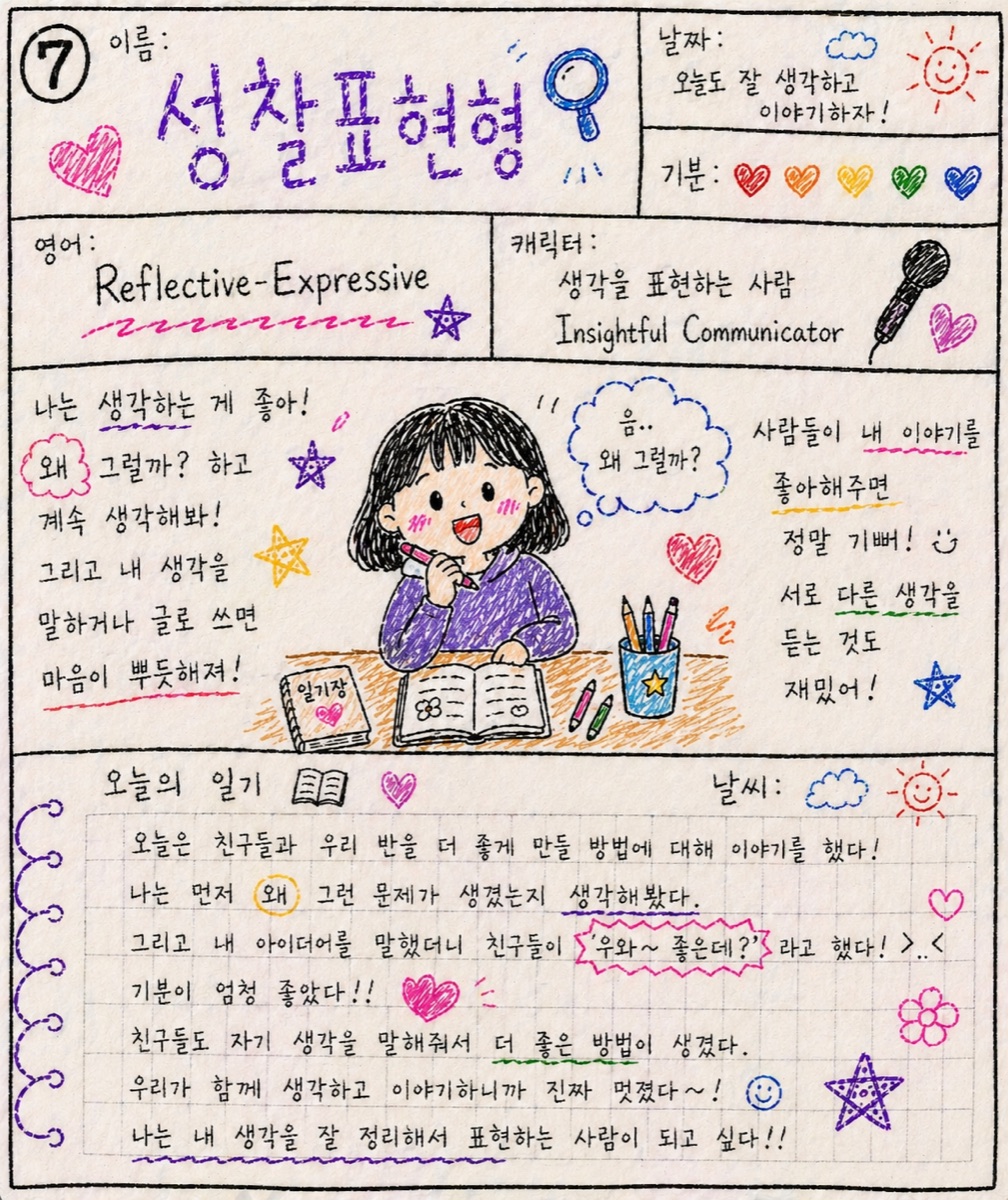 ⑦ 이름:
성찰표현형
날짜:
오늘도 잘 생각하고
이야기하자!
기분:
영어:
Reflective-Expressive
캐릭터:
생각을 표현하는 사람
Insightful Communicator
나는 생각하는 게 좋아!
왜 그럴까? 하고
계속 생각해봐!
그리고 내 생각을
말하거나 글로 쓰면
마음이 뿌듯해져!
음..
왜 그럴까?
일기장
사람들이 내 이야기를
좋아해주면
정말 기뻐!
서로 다른 생각을
듣는 것도
재밌어!
오늘의 일기
날씨:
오늘은 친구들과 우리 반을 더 좋게 만들 방법에 대해 이야기를 했다!
나는 먼저 왜 그런 문제가 생겼는지 생각해봤다.
그리고 내 아이더어를 말했더니 친구들이 '우와~ 좋은데?' 라고 했다! >..<
기분이 엄청 좋았다!!
친구들도 자기 생각을 말해줘서 더 좋은 방법이 생겼다.
우리가 함께 생각하고 이야기하니까 진짜 멋졌다~!
나는 내 생각을 잘 정리해서 표현하는 사람이 되고 싶다!!